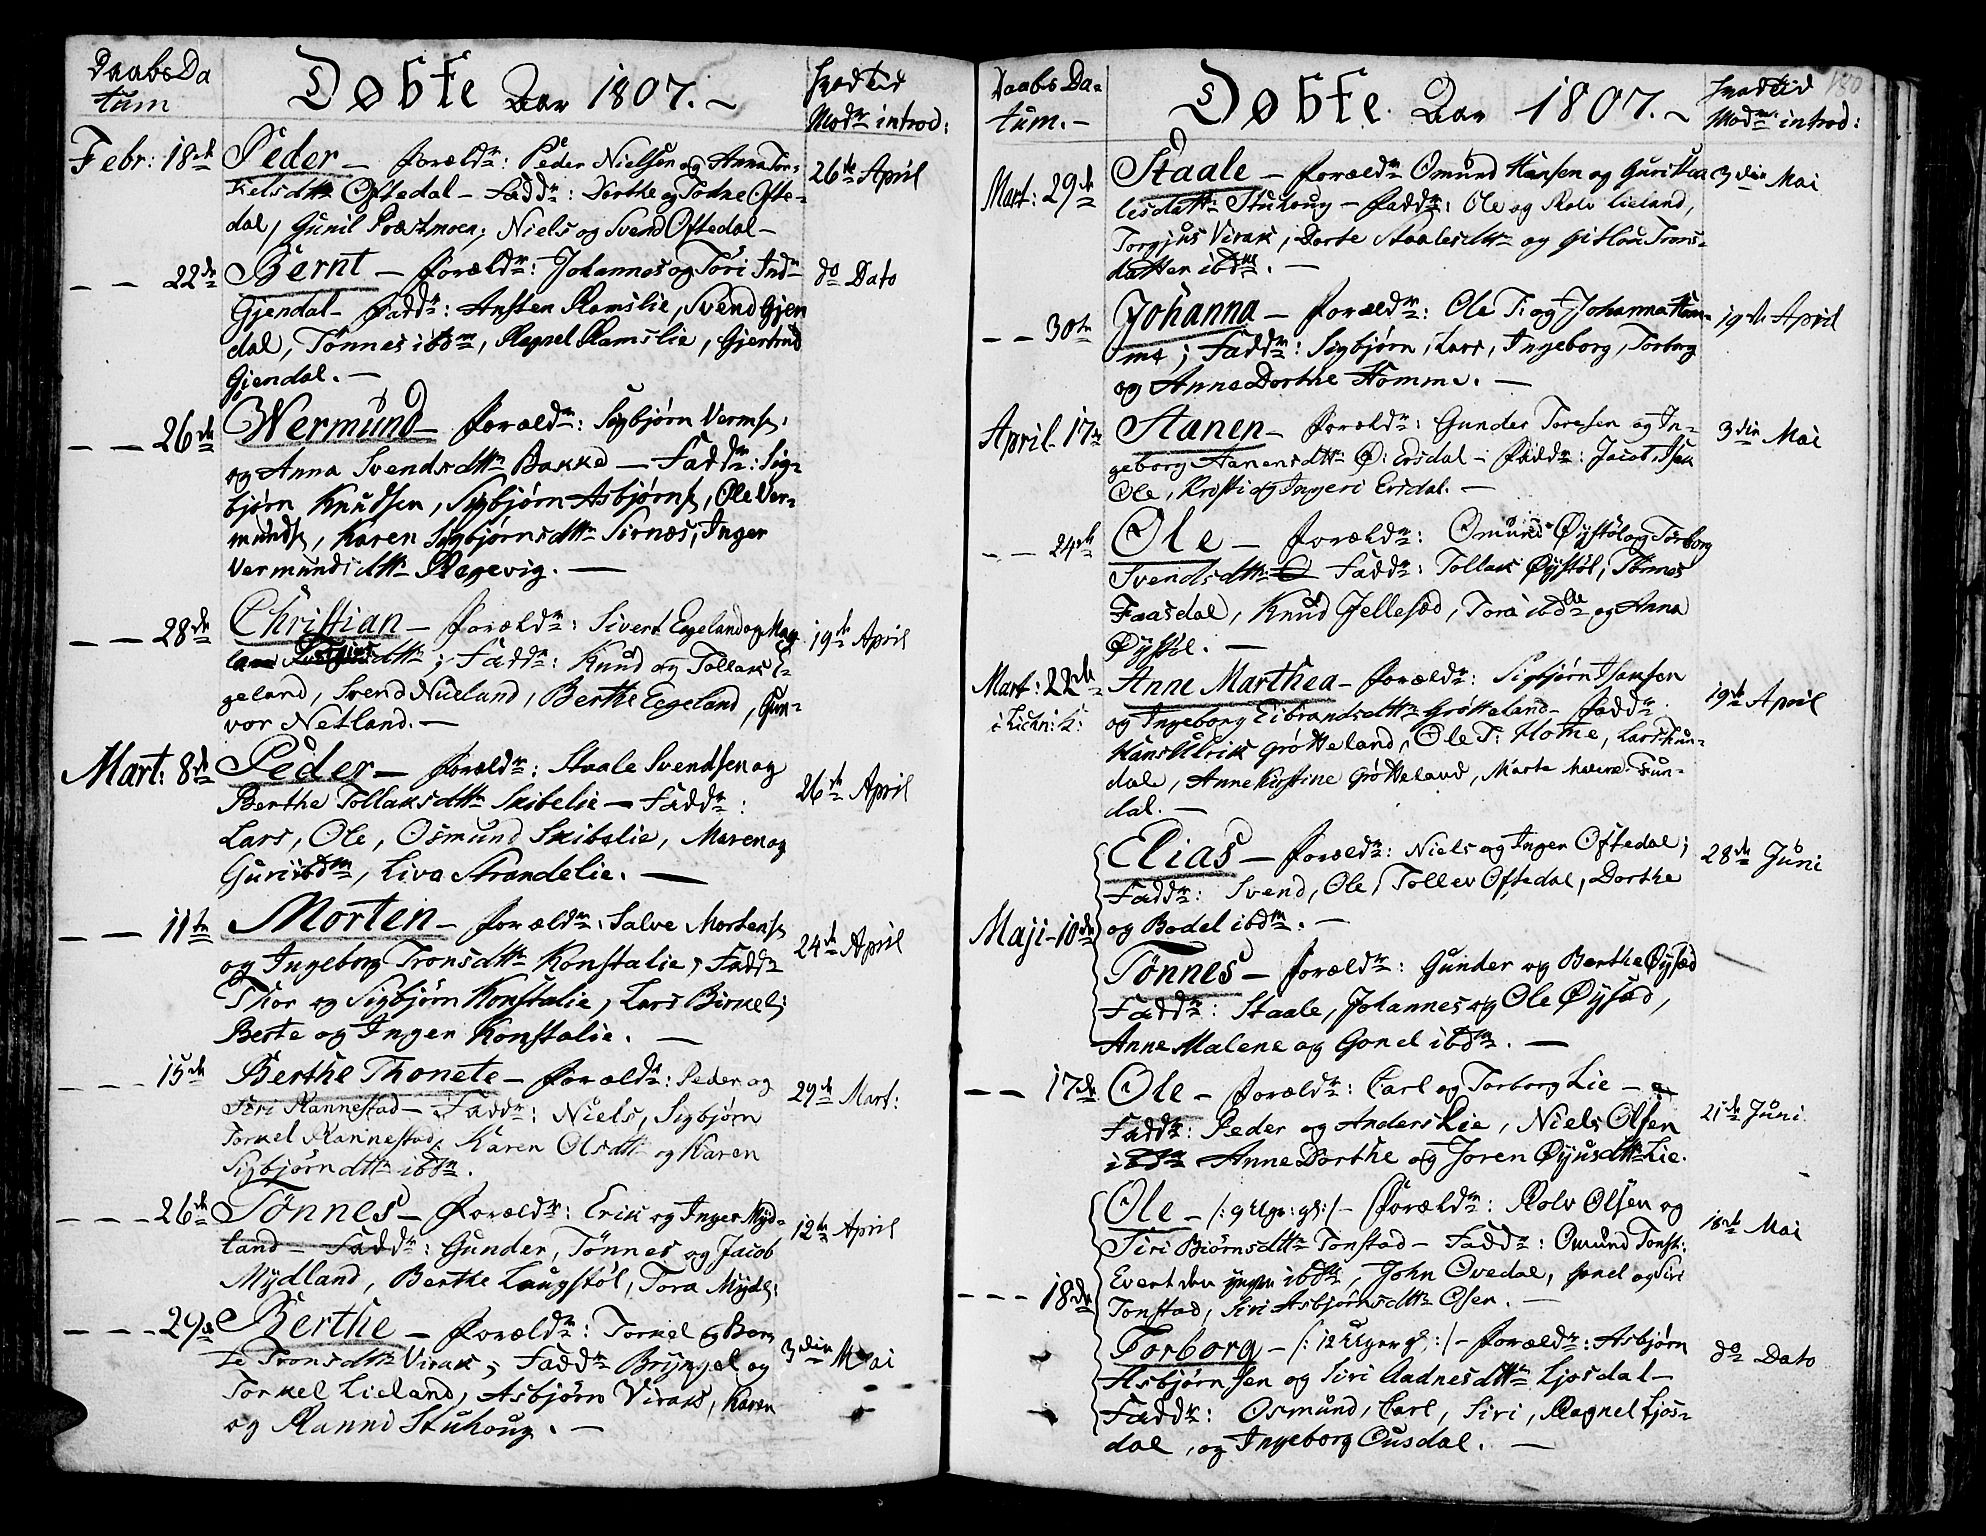 Daabs Da
tum
Døbte Aar 1807.
hvad tid
Modr introd:
Febr: 18de Peder — foræld: Peder Nielsen og Anna Tor-
kelsdttr Oftedal — Fadd: Dorthe og Todne Ofte-
dal, Gunil Præstmoen, Niels og Svend Oftedal —
26de April
— — 22de Bernt — foræld: Johannes og Tori Ind-
Gjendal — Fadd: Ansten Ramslie, Svend Gjen
dal, Tønnes ibdm, Ragnel Ramslie, Gjertrud
Gjendal. —
do Dato
— — 26de Wermund — foræld: Sigbjørn Verms:
og Anna Svendsdttr Bakke — Fadd: Sig-
bjørn Knudsen, Sigbjørn Asbjørns, Ole Ver-
munds, Karen Sigbjørnsdttr Sirnæs, Inger
Vermundsdttr Regevig. —
— — 28de Christian — foræld: Sivert Egeland og Mag
dttr; Fadd: Knud og Tollak E-
geland, Svend Nueland, Berthe Egeland, Gun-
vor Netland. —
19de April
Mart: 8de Peder — foræld: Staale Svendsen og
Berthe Tollaksdttr Skibelie — Fadd:
Lars, Ole, Osmund Skibelie, Maren og
Guri ibdm, Liva Strandelie. —
26de April
— — 11te Morten — foræld: Salve Mortens
og Ingeborg Tronsdttr Konstalie, Fadd
Thor og Sigbjørn Konstalie, Lars Birkel;
Berte og Inger Konstalie. —
24de April
— — 15de Berthe Thonete — foræld: Peder og
Siri Rannestad — Fadd: Niels, Sigbjørn
Torkel Rannestad, Karen Olsdttr og Karen
Sigbjørndttr ibdm.
29de Mart:
— — — 26de Tønnes — foræld: Erik og Inger Myd-
land — Fadd: Gunder, Tønnes og Jacob
Mydland, Berthe Laugstøl, Tora Mydl:
12te April
— — — 29de Berthe — foræld: Torkel og Ber
te Tronsdttr Virak; Fadd: Bryngel og
Torkel Lieland, Asbjørn Virak, Karen
og Ranni Stuhoug. —
3die Mai
Daabs Da-
tum. —
Døbte Aar 1807. —
hvad tid
Modr introd:
180
Mart: 29de Staale — foræld Omund Hansen og Guri Staa
lesdattr Stuhoug — Fadd: Ole og Rolv Lieland,
Torgjus Virak, Dorte Staalesdttr og Gitlou Trons-
datter ibdm. —
3die Mai
— — 30te Johanna — foræld: Ole T: og Johanna Hom-
me; Fadd: Sigbjørn, Lars, Ingeborg, Torborg
og Anne Dorthe Homme. —
19de April
April 17de Aanen — foræld: Gunder Toresen og In-
geborg Aanensdttr Ø: Ersdal — Fadd: Jacob, Isak
Ole, Kristi og Ingeri Ersdal. —
3die Mai
— — 24de Ole — foræld: Omund Øystøl og Torborg
Svendsdttr Fadd: Tollak Øystøl, Tønnes
Faasdal, Knud Jellesæd, Tora ibdm og Anna
Øystøl. —
Mart: 22de Anne Marthea — foræld: Sigbjørn Hansen
i Lichn: K:
og Ingeborg Eibrandsdttr Grøtteland — Fadd:
Hans Ulrik Grøtteland, Ole T: Home, Lars Fun-
dal, Anne Kirstine Grøtteland, Marta Malene Fun-
dal. —
19de April
Maji — 10de
Elias — foræld: Niels og Inger Oftedal;
Fadd: Svend, Ole, Tollev Oftedal, Dorthe
og Bodel ibdm. —
28de Juni
Tønnes — foræld: Gunder og Berthe Øysæd
Fadd: Staale, Johannes og Ole Øysæd,
Anne Malene og Gonel ibdm. —
— — 17de Ole — foræld: Carl og Torborg Lie —
Fadd: Peder og Anders Lie, Niels Olsen
ibdm Anne Dorthe og Joren Øyusdttr Lie.
21de Juni
— — — 18de
Ole — /: 9 Uger: gl: / — foræld: Rolv Olsen og
Siri Biørnsdttr Tonstad — Fadd: Omund Tonst:
Evert den yngre ibdm, John Ovedal, Gonel og Siri
Tonstad, Siri Asbjørnsdttr Osen. —
18de Mai
Torborg — /: 12 Uger gl: / — foræld: Asbjørn
Asbjørnsen og Siri Aadnesdttr Ljosdal —
Fadd: Osmund, Carl, Siri, Ragnel Ljos-
dal, og Ingeborg Ousdal. —
do Dato